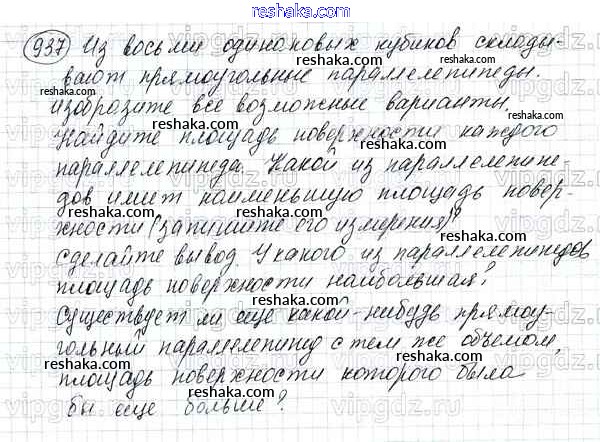 reshaka.com
937 Из восьми одинаковых кубиков склады-
reshaka.com
вают прямоугольные параллелепипеды.
reshaka.com
изобразите все возможные варианты.
reshaka.com
Найдите площадь поверхности каждого
reshaka.com
параллелепипеда. Какой из параллелепипе-
reshaka.com
дов имеет наименьшую площадь повер-
reshaka.com
хности (запишите его измерения)?
reshaka.com
сделайте вывод. У какого из параллелепипедов
reshaka.com
площадь поверхности наибольшая?
reshaka.com
Существует ли еще какой-нибудь прямоу-
reshaka.com
гольный параллелепипед с тем же объемом,
reshaka.com
площадь поверхности которого была
reshaka.com
бы еще больше?
reshaka.com